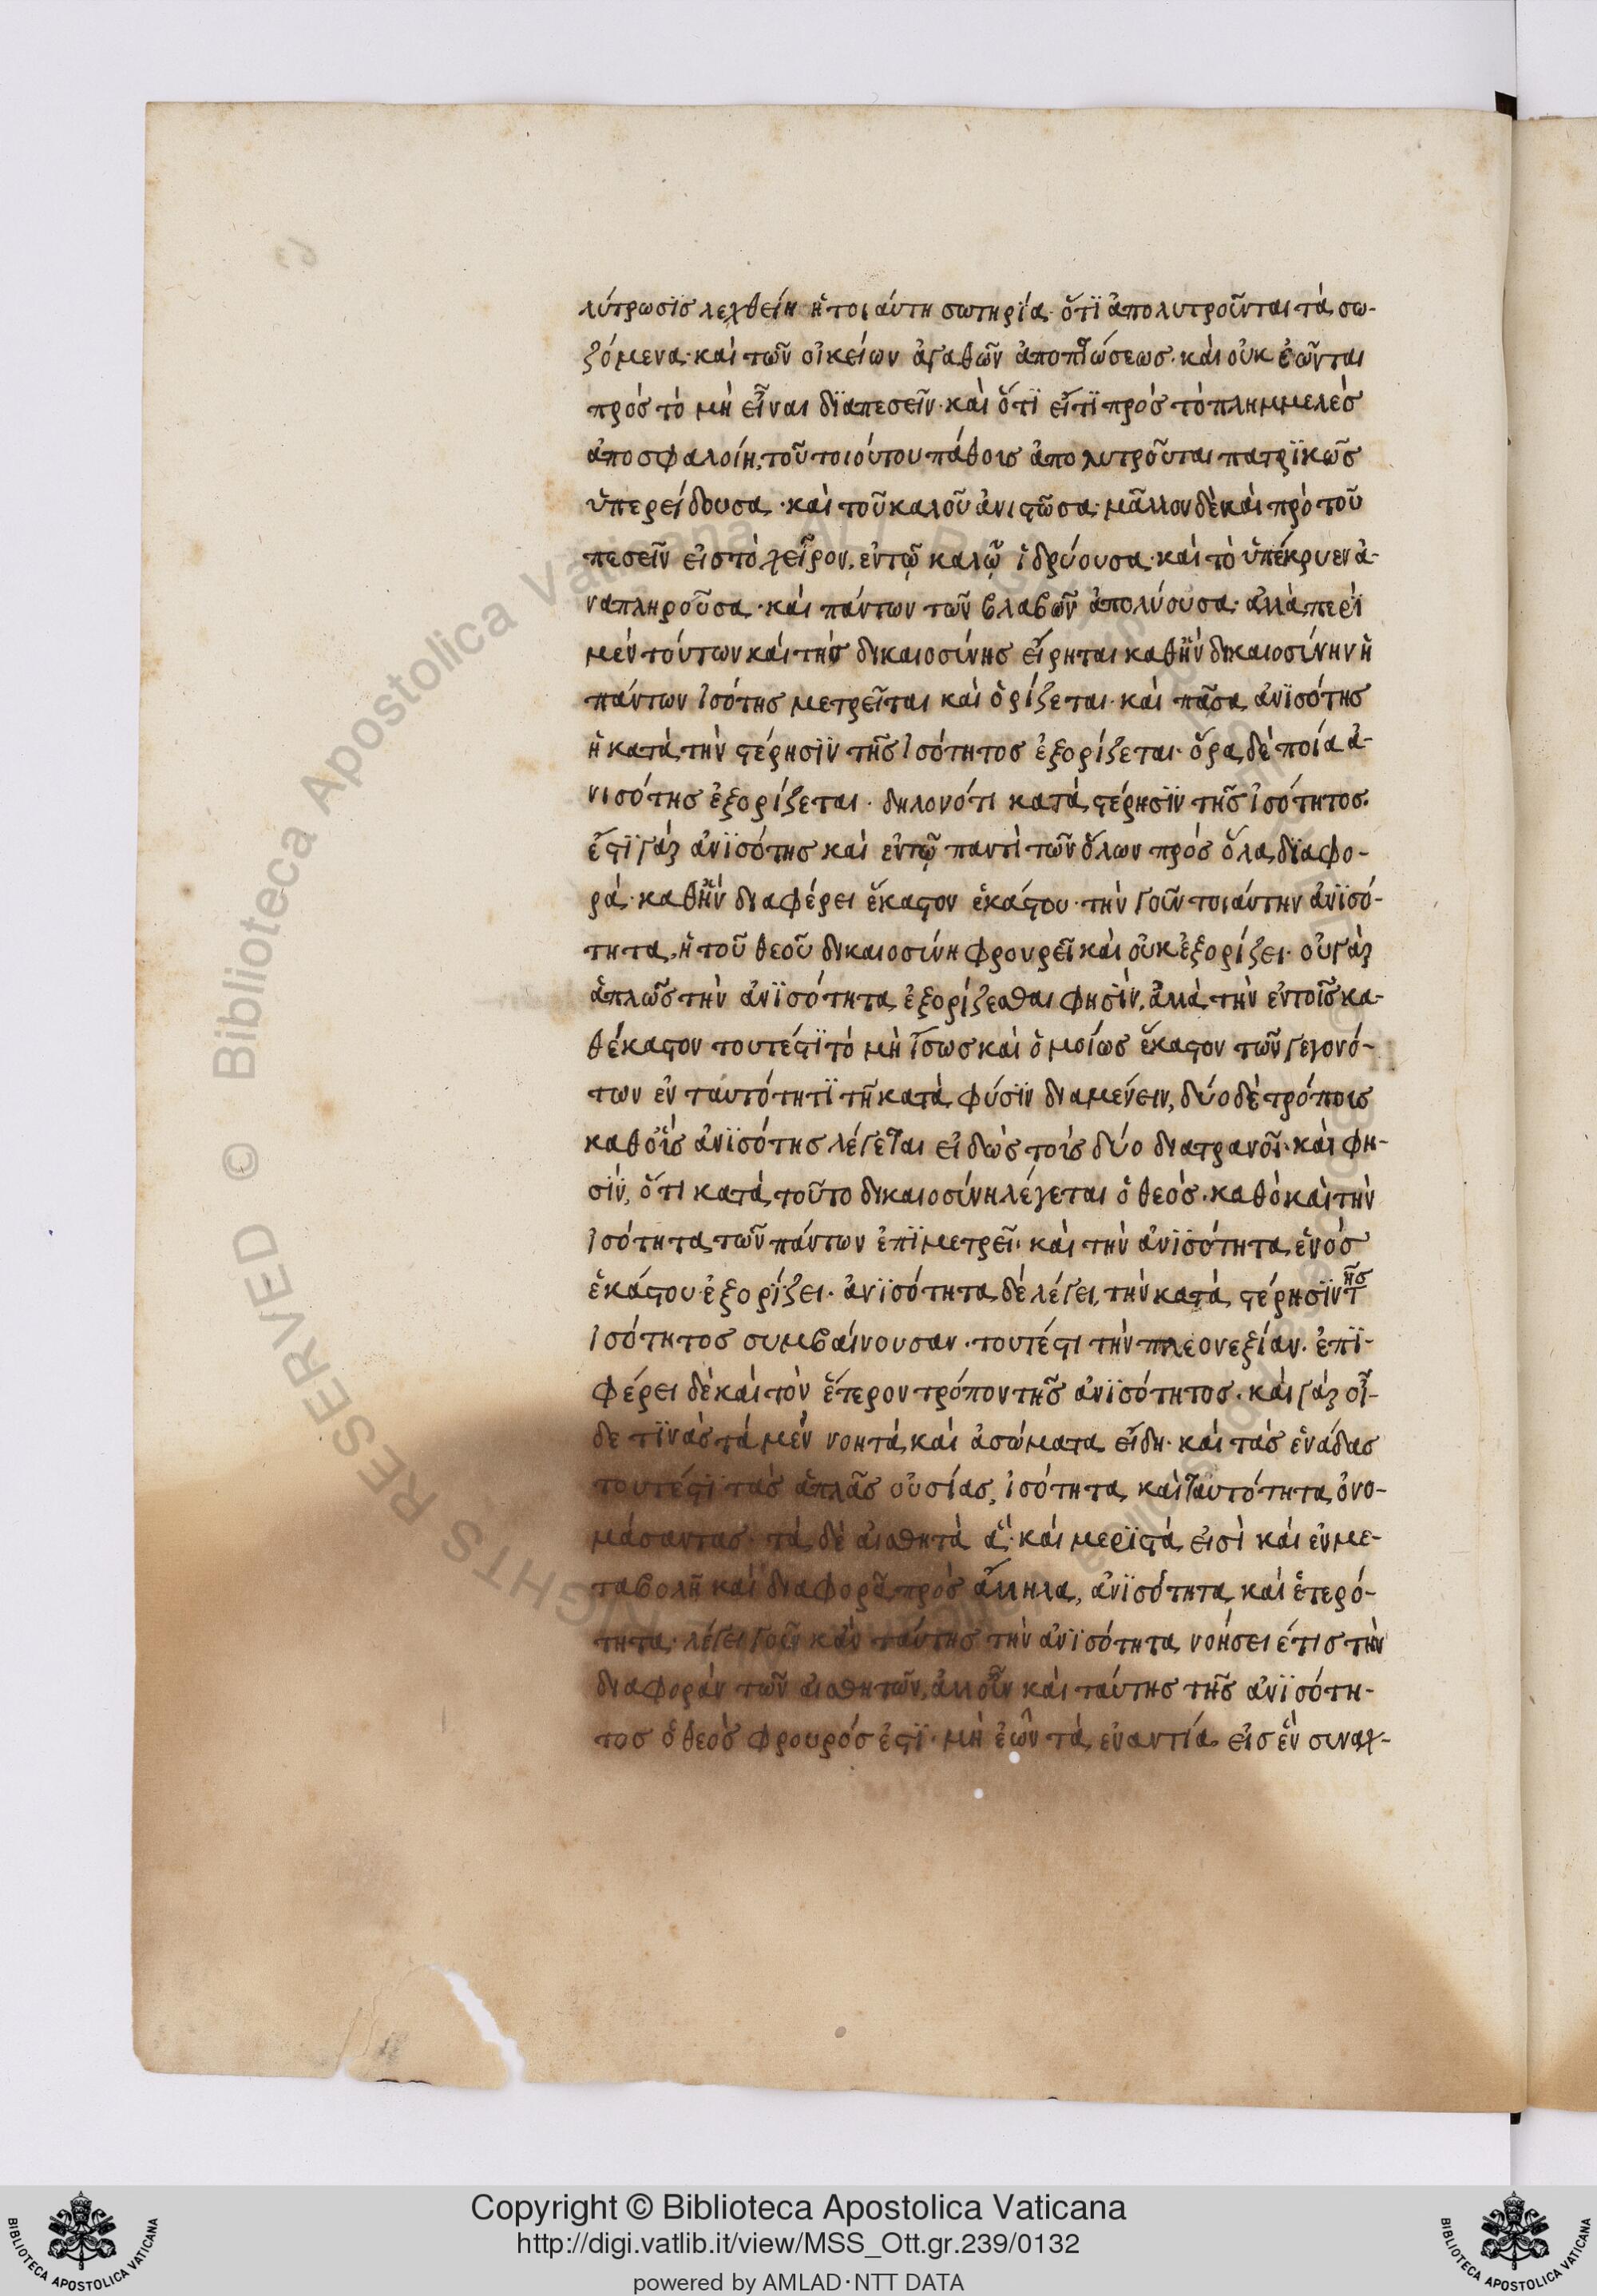 λύτρωσϊς λεχθείη ἡ τοιάυτη σωτηρία· ὅτϊ ἀπολυτροῦνται τὰ σω-
ζόμενα· καὶ τῶν οἰκείων ἀγαθῶν ἀποπτώσεως· καὶ οὐκ ἐῶνται
πρὸς τὸ μὴ εἶναι δϊαπεσεῖν· καὶ ὅτϊ εἴτϊ πρὸς τὸ πλημμελὲς
ἀποσφαλοίη, τοῦ τοιούτου πάθους ἀπολυτροῦται πατρϊκῶς
ὑπερείδουσα· καὶ τοῦ καλοῦ ἀνιστῶσα· μᾶλλον δὲ καὶ πρὸ τοῦ
πεσεῖν εἰς τὸ χεῖρον, ἐν τῷ καλῷ ἱδρύουσα· καὶ τὸ ὑπέκρυεν ἀ-
ναπληροῦσα· καὶ πάντων τῶν βλαβῶν ἀπολύουσα· ἀλλὰ περὶ
μὲν τούτων καὶ τῆς δικαιοσύνης εἴρηται καθ' ἣν δικαιοσύνην ἡ
πάντων ἰσότης μετρεῖται καὶ ὁρίζεται· καὶ πᾶσα ἀνϊσότης
ἡ κατὰ τὴν στέρησϊν τῆς ἰσότητος ἐξορίζεται· ὅρα δὲ ποία ἀ-
νισότης ἐξορίζεται· δηλονότι κατὰ στέρησϊν τῆς ἰσότητος.
ἔστϊ γὰρ ἀνϊσότης καὶ ἐν τῷ παντὶ τῶν ὅλων πρὸς ὅλα δϊαφο-
ρά· καθ' ἣν διαφέρει ἕκαστον ἑκάστου· τὴν γοῦν τοιάυτην ἀνϊσό-
τητα, ἡ τοῦ θεοῦ δικαιοσύνη φρουρεῖ καὶ οὐκ ἐξορίζει· οὐ γὰρ
ἁπλῶς τὴν ἀνϊσότητα ἐξορίζεσθαι φησϊν, ἀλλὰ τὴν ἐν τοῖς κα-
θέκαστον τουτέστϊ τὸ μὴ ἴσως καὶ ὁμοίως ἕκαστον τῶν γεγονό-
των ἐν ταυτότητϊ τῇ κατὰ φύσϊν διαμένειν, δύο δὲ τρόποις
καθ' οἷς ἀνϊσότης λέγεται εἰδὼς τοὶς δύο διατρανοῖ· καὶ φη-
σϊν, ὅτι κατὰ τοῦτο δικαιοσύνη λέγεται ὁ θεὸς· καθὸ καὶ τὴν
ἰσότητα τῶν πάντων ἐπϊμετρεῖ· καὶ τὴν ἀνϊσότητα ἑνὸς
ἑκάστου ἐξορϊζει· ἀνϊσότητα δὲ λέγει, τὴν κατὰ στέρησϊν τῆς
ἰσότητος συμβαίνουσαν· τουτέστι τὴν πλεονεξίαν· ἐπϊ-
φέρει δὲ καὶ τὸν ἕτερον τρόπον τῆς ἀνϊσότητος· καὶ γὰρ οἶ-
δε τϊνὰς τὰ μὲν νοητὰ καὶ ἀσώματα εἴδη· καὶ τὰς ἑνάδας
τουτέστϊ τὰς ἁπλᾶς οὐσίας, ἰσότητα καὶ ταυτότητα ὀνο-
μάσαντας· τὰ δὲ αἰσθητὰ ἃ καὶ μερϊστὰ εἰσὶ καὶ ἐν με-
ταβολῇ καὶ διαφορᾷ πρὸς ἄλληλα, ἀνϊσότητα καὶ ἑτερό-
τητα· λέγει γοῦν κἀν ταύτης τὴν ἀνϊσότητα νοήσει έτις τὴν
διαφορὰν τῶν αἰσθητῶν, ἀλλ' οὖν καὶ ταύτης τῆς ἀνϊσότη-
τος ὁ θεὸς φρουρός ἐστϊ· μὴ ἐῶν τὰ ἐναντία εἰς ἓν συναχ-
Copyright © Biblioteca Apostolica Vaticana
http://digi.vatlib.it/view/MSS_Ott.gr.239/0132
powered by AMLAD·NTT DATA